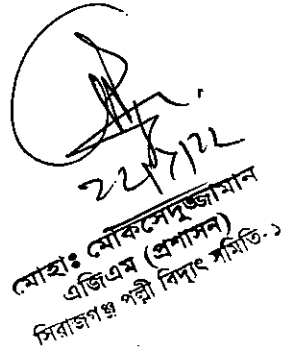 22/7/22
মোহাঃ মোকসেদুজ্জামান
এজিএম (প্রশাসন)
সিরাজগঞ্জ পল্লী বিদ্যুৎ সমিতি-১